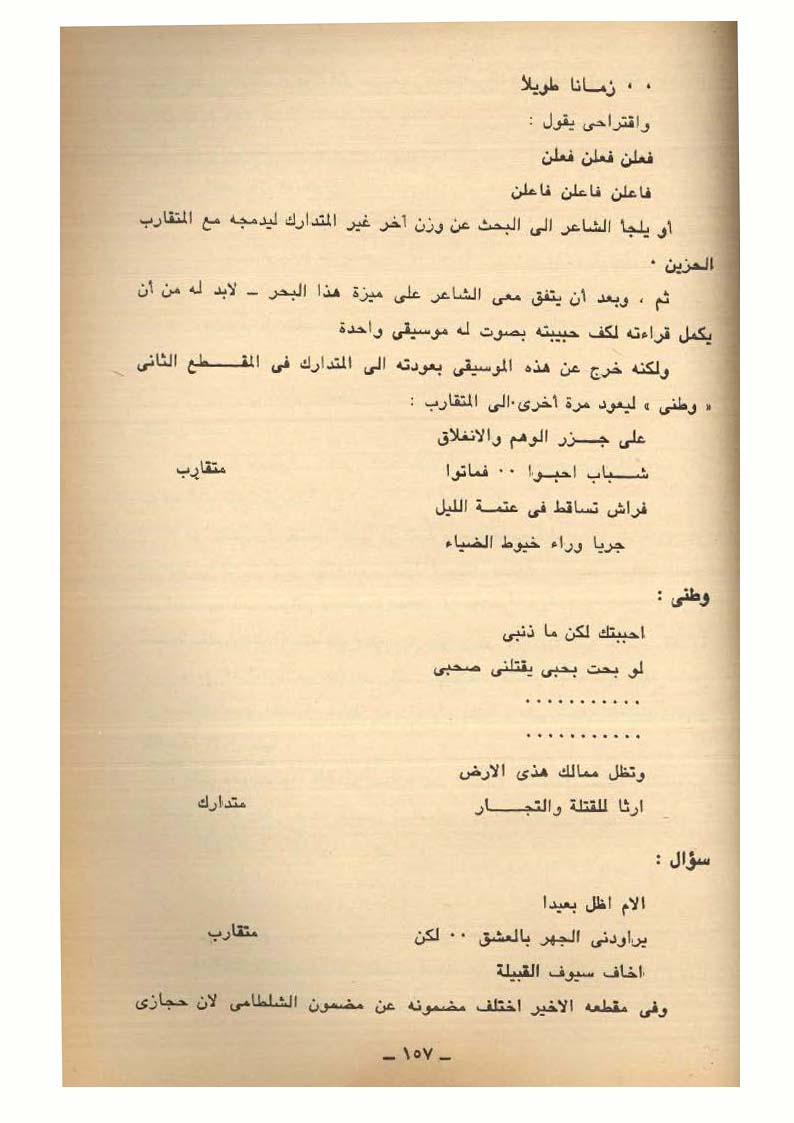 ٠ ٠ زمـانا طويلاً
واقتراحى يقول :
فعلن فعلن فعلن
فاعلن فاعلن فاعلن
أو يلجأ الشاعر الى البحث عن وزن آخر غير المتدارك ليدمجه مع المتقارب
الحزين ٠
ثم ، وبعد أن يتفق معى الشاعر على ميزة هذا البحر – لابد له من أن
يكمل قراءته لكف حبيبته بصوت له موسيقى واحدة
ولكنه خرج عن هذه الموسيقى بعودته الى المتدارك فى المقـطع الثانى
« وطنى » ليعود مرة أخرى الى المتقارب :
على جـزر الوهم والانغلاق
شـباب احبـوا ٠٠ فماتوا متقارب
فراش تساقط فى عتمـة الليل
جريا وراء خيوط الضياء
وطنى :
احببتك لكن ما ذنبى
لو بحت بحبى يقتلنى صحبى
٠٠٠٠٠٠٠٠٠٠٠
٠٠٠٠٠٠٠٠٠٠٠
وتظل ممالك هذى الارض
ارثا للقتلة والتجـار متدارك
سؤال :
الام اظل بعيدا
يراودنى الجهر بالعشق ٠٠ لكن متقارب
اخاف سيوف القبيلة
وفى مقطعه الاخير اختلف مضمونه عن مضمون الشلطامى لان حجازى
– ١٥٧ –